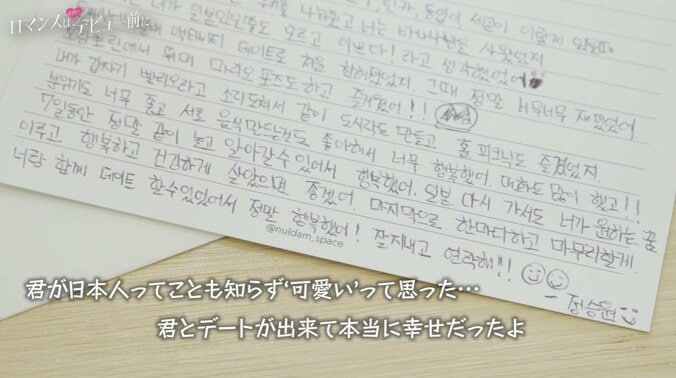 ロマンスは、デビュー前に。
너는 바나나맛을 사왔었지
일본인인줄도 모르고 이쁘다! 라고 생각했었어
데이트로 처음 친해졌었지. 그때 정말 너무너무 재밌었어
에서 뛰며 마리오 포즈도 하고 즐거웠어!!
내가 갑자기 빨리오라고 소리도쳐서 같이 도시락도 만들고 홈피크닉도 즐겼었지
분위기도 너무 좋고 서로 음식만드는것도 좋아해서 너무 행복했어. 대화도 많이 했고!!
7일동안 정말 같이 놀고 알아갈수 있어서 행복했어. 일본 다시 가서도 너가 원하는 꿈
이루고 행복하고 건강하게 살았으면 좋겠어. 마지막으로 한마디하고 마무리할게.
너랑 함께 데이트 할수있었어서 정말 행복했어! 잘지내고 연락해!!
- 정승원
@nuldam_space
君が日本人ってことも知らず‘可愛い’って思った…
君とデートが出来て本当に幸せだったよ